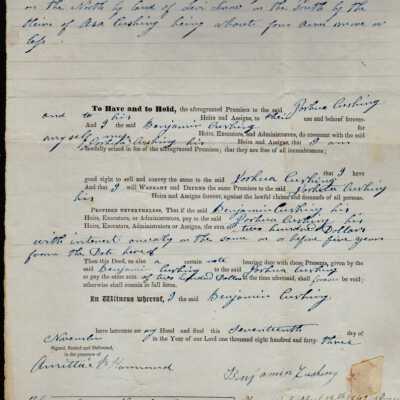 on the North by land of Levi Snow on the South by the
Heirs of Asa Cushing being about four acres more or
less.
To Have and to Hold, the aforegranted Premises to the said Joshua Cushing
and to his Heirs and Assigns, to their use and behoof forever.
And I the said Benjamin Cushing for
myself and my Heirs, Executors, and Administrators, do covenant with the said
Joshua Cushing his Heirs and Assigns, that I am
lawfully seized in fee of the aforegranted Premises; that they are free of all incumbrances;
that I have
good right to sell and convey the same to the said Joshua Cushing
And that I will WARRANT and DEFEND the same Premises to the said Joshua Cushing
his
Heirs and Assigns forever, against the lawful claims and demands of all persons.
PROVIDED NEVERTHELESS, That if the said Benjamin Cushing his
Heirs, Executors, or Administrators, pay to the said Joshua Cushing his
Heirs, Executors, Administrators or Assigns, the sum of two hundred Dollars
with interest annually on the same on or before five years
from the Date hereof
Then this Deed, as also a certain note bearing even date with these Presents, given by the
said Benjamin Cushing to the said Joshua Cushing
to pay the same sum of two hundred Dollars at the time aforesaid, shall be void;
otherwise shall remain in full force.
In Witness whereof, I the said Benjamin Cushing.
have hereunto set my Hand and Seal this Seventeenth day of
November in the Year of our Lord one thousand eight hundred and forty three
Signed, Sealed and Delivered,
in the presence of
Hammond
Benjamin Cushing